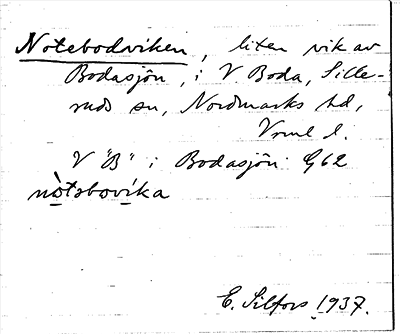 Notebodviken, liten vik av
Bodasjön, i V. Boda, Sille-
ruds sn, Nordmarks hd,
Vrml l.
V "B" i Bodasjön G62
nòtsbovika
E. Silfors 1937.